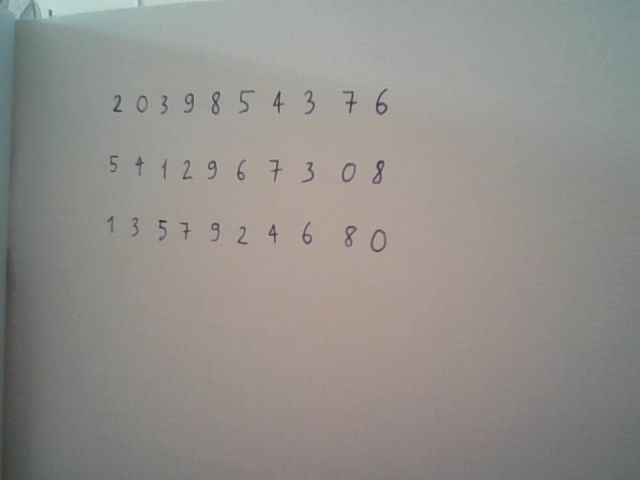 2 0 3 9 8 5 4 3 7 6
5 4 1 2 9 6 7 3 0 8
1 3 5 7 9 2 4 6 8 0